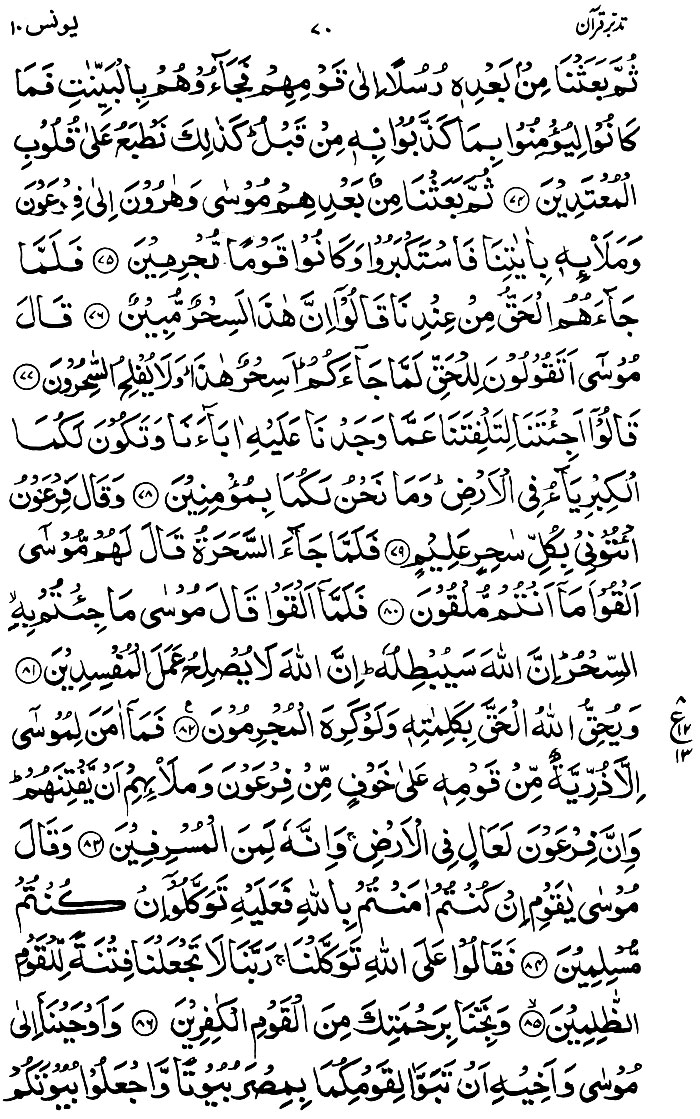 تدبر قرآن ۷۰ یونس ۱۰
ثُمَّ بَعَثْنَا مِنْۢ بَعْدِهٖ رُسُلًا اِلٰى قَوْمِهِمْ فَجَآءُوْهُمْ بِالْبَيِّنٰتِ فَمَا
كَانُوْا لِيُؤْمِنُوْا بِمَا كَذَّبُوْا بِهٖ مِنْ قَبْلُ ؕ كَذٰلِكَ نَطْبَعُ عَلٰى قُلُوْبِ
الْمُعْتَدِيْنَ ﴿۷۴﴾ ثُمَّ بَعَثْنَا مِنْۢ بَعْدِهِمْ مُّوْسٰى وَهٰرُوْنَ اِلٰى فِرْعَوْنَ
وَمَلَا۟ئِهٖ بِاٰيٰتِنَا فَاسْتَكْبَرُوْا وَكَانُوْا قَوْمًا مُّجْرِمِيْنَ ﴿۷۵﴾ فَلَمَّا
جَآءَهُمُ الْحَقُّ مِنْ عِنْدِنَا قَالُوْٓا اِنَّ هٰذَا لَسِحْرٌ مُّبِيْنٌ ﴿۷۶﴾ قَالَ
مُوْسٰٓى اَتَقُوْلُوْنَ لِلْحَقِّ لَمَّا جَآءَكُمْ ؕ اَسِحْرٌ هٰذَا ؕ وَلَا يُفْلِحُ السّٰحِرُوْنَ ﴿۷۷﴾
قَالُوْٓا اَجِئْتَنَا لِتَلْفِتَنَا عَمَّا وَجَدْنَا عَلَيْهِ اٰبَآءَنَا وَتَكُوْنَ لَكُمَا
الْكِبْرِيَآءُ فِى الْاَرْضِ ؕ وَمَا نَحْنُ لَكُمَا بِمُؤْمِنِيْنَ ﴿۷۸﴾ وَقَالَ فِرْعَوْنُ
ائْتُوْنِىْ بِكُلِّ سٰحِرٍ عَلِيْمٍ ﴿۷۹﴾ فَلَمَّا جَآءَ السَّحَرَةُ قَالَ لَهُمْ مُّوْسٰٓى
اَلْقُوْا مَآ اَنْتُمْ مُّلْقُوْنَ ﴿۸۰﴾ فَلَمَّآ اَلْقَوْا قَالَ مُوْسٰى مَا جِئْتُمْ بِهِ ۙ
السِّحْرُ ؕ اِنَّ اللّٰهَ سَيُبْطِلُهٗ ؕ اِنَّ اللّٰهَ لَا يُصْلِحُ عَمَلَ الْمُفْسِدِيْنَ ﴿۸۱﴾
وَيُحِقُّ اللّٰهُ الْحَقَّ بِكَلِمٰتِهٖ وَلَوْ كَرِهَ الْمُجْرِمُوْنَ ﴿۸۲﴾ فَمَآ اٰمَنَ لِمُوْسٰٓى
۸
ع ۱۲
۱۳
اِلَّا ذُرِّيَّةٌ مِّنْ قَوْمِهٖ عَلٰى خَوْفٍ مِّنْ فِرْعَوْنَ وَمَلَا۟ئِهِمْ اَنْ يَّفْتِنَهُمْ ؕ
وَاِنَّ فِرْعَوْنَ لَعَالٍ فِى الْاَرْضِ ۚ وَاِنَّهٗ لَمِنَ الْمُسْرِفِيْنَ ﴿۸۳﴾ وَقَالَ
مُوْسٰى يٰقَوْمِ اِنْ كُنْتُمْ اٰمَنْتُمْ بِاللّٰهِ فَعَلَيْهِ تَوَكَّلُوْٓا اِنْ كُنْتُمْ
مُّسْلِمِيْنَ ﴿۸۴﴾ فَقَالُوْا عَلَى اللّٰهِ تَوَكَّلْنَا ۚ رَبَّنَا لَا تَجْعَلْنَا فِتْنَةً لِّلْقَوْمِ
الظّٰلِمِيْنَ ﴿۸۵﴾ ۙ وَنَجِّنَا بِرَحْمَتِكَ مِنَ الْقَوْمِ الْكٰفِرِيْنَ ﴿۸۶﴾ وَاَوْحَيْنَآ اِلٰى
مُوْسٰى وَاَخِيْهِ اَنْ تَبَوَّاٰ لِقَوْمِكُمَا بِمِصْرَ بُيُوْتًا وَّاجْعَلُوْا بُيُوْتَكُمْ